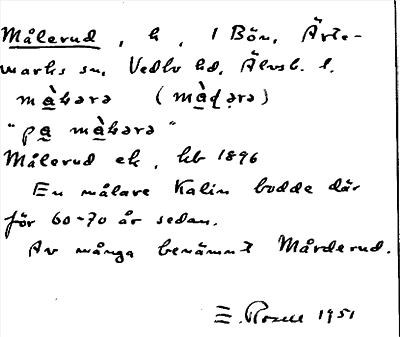 Målerud, h, 1 Bön, Ärte-
marks sn, Vedbo hd, Älvsb. l.
"på
Målerud ek, hb 1896
En målare Kalin bodde där
för 60-70 år sedan.
Av många benämnt Mårderud.
E. Rosell 1951